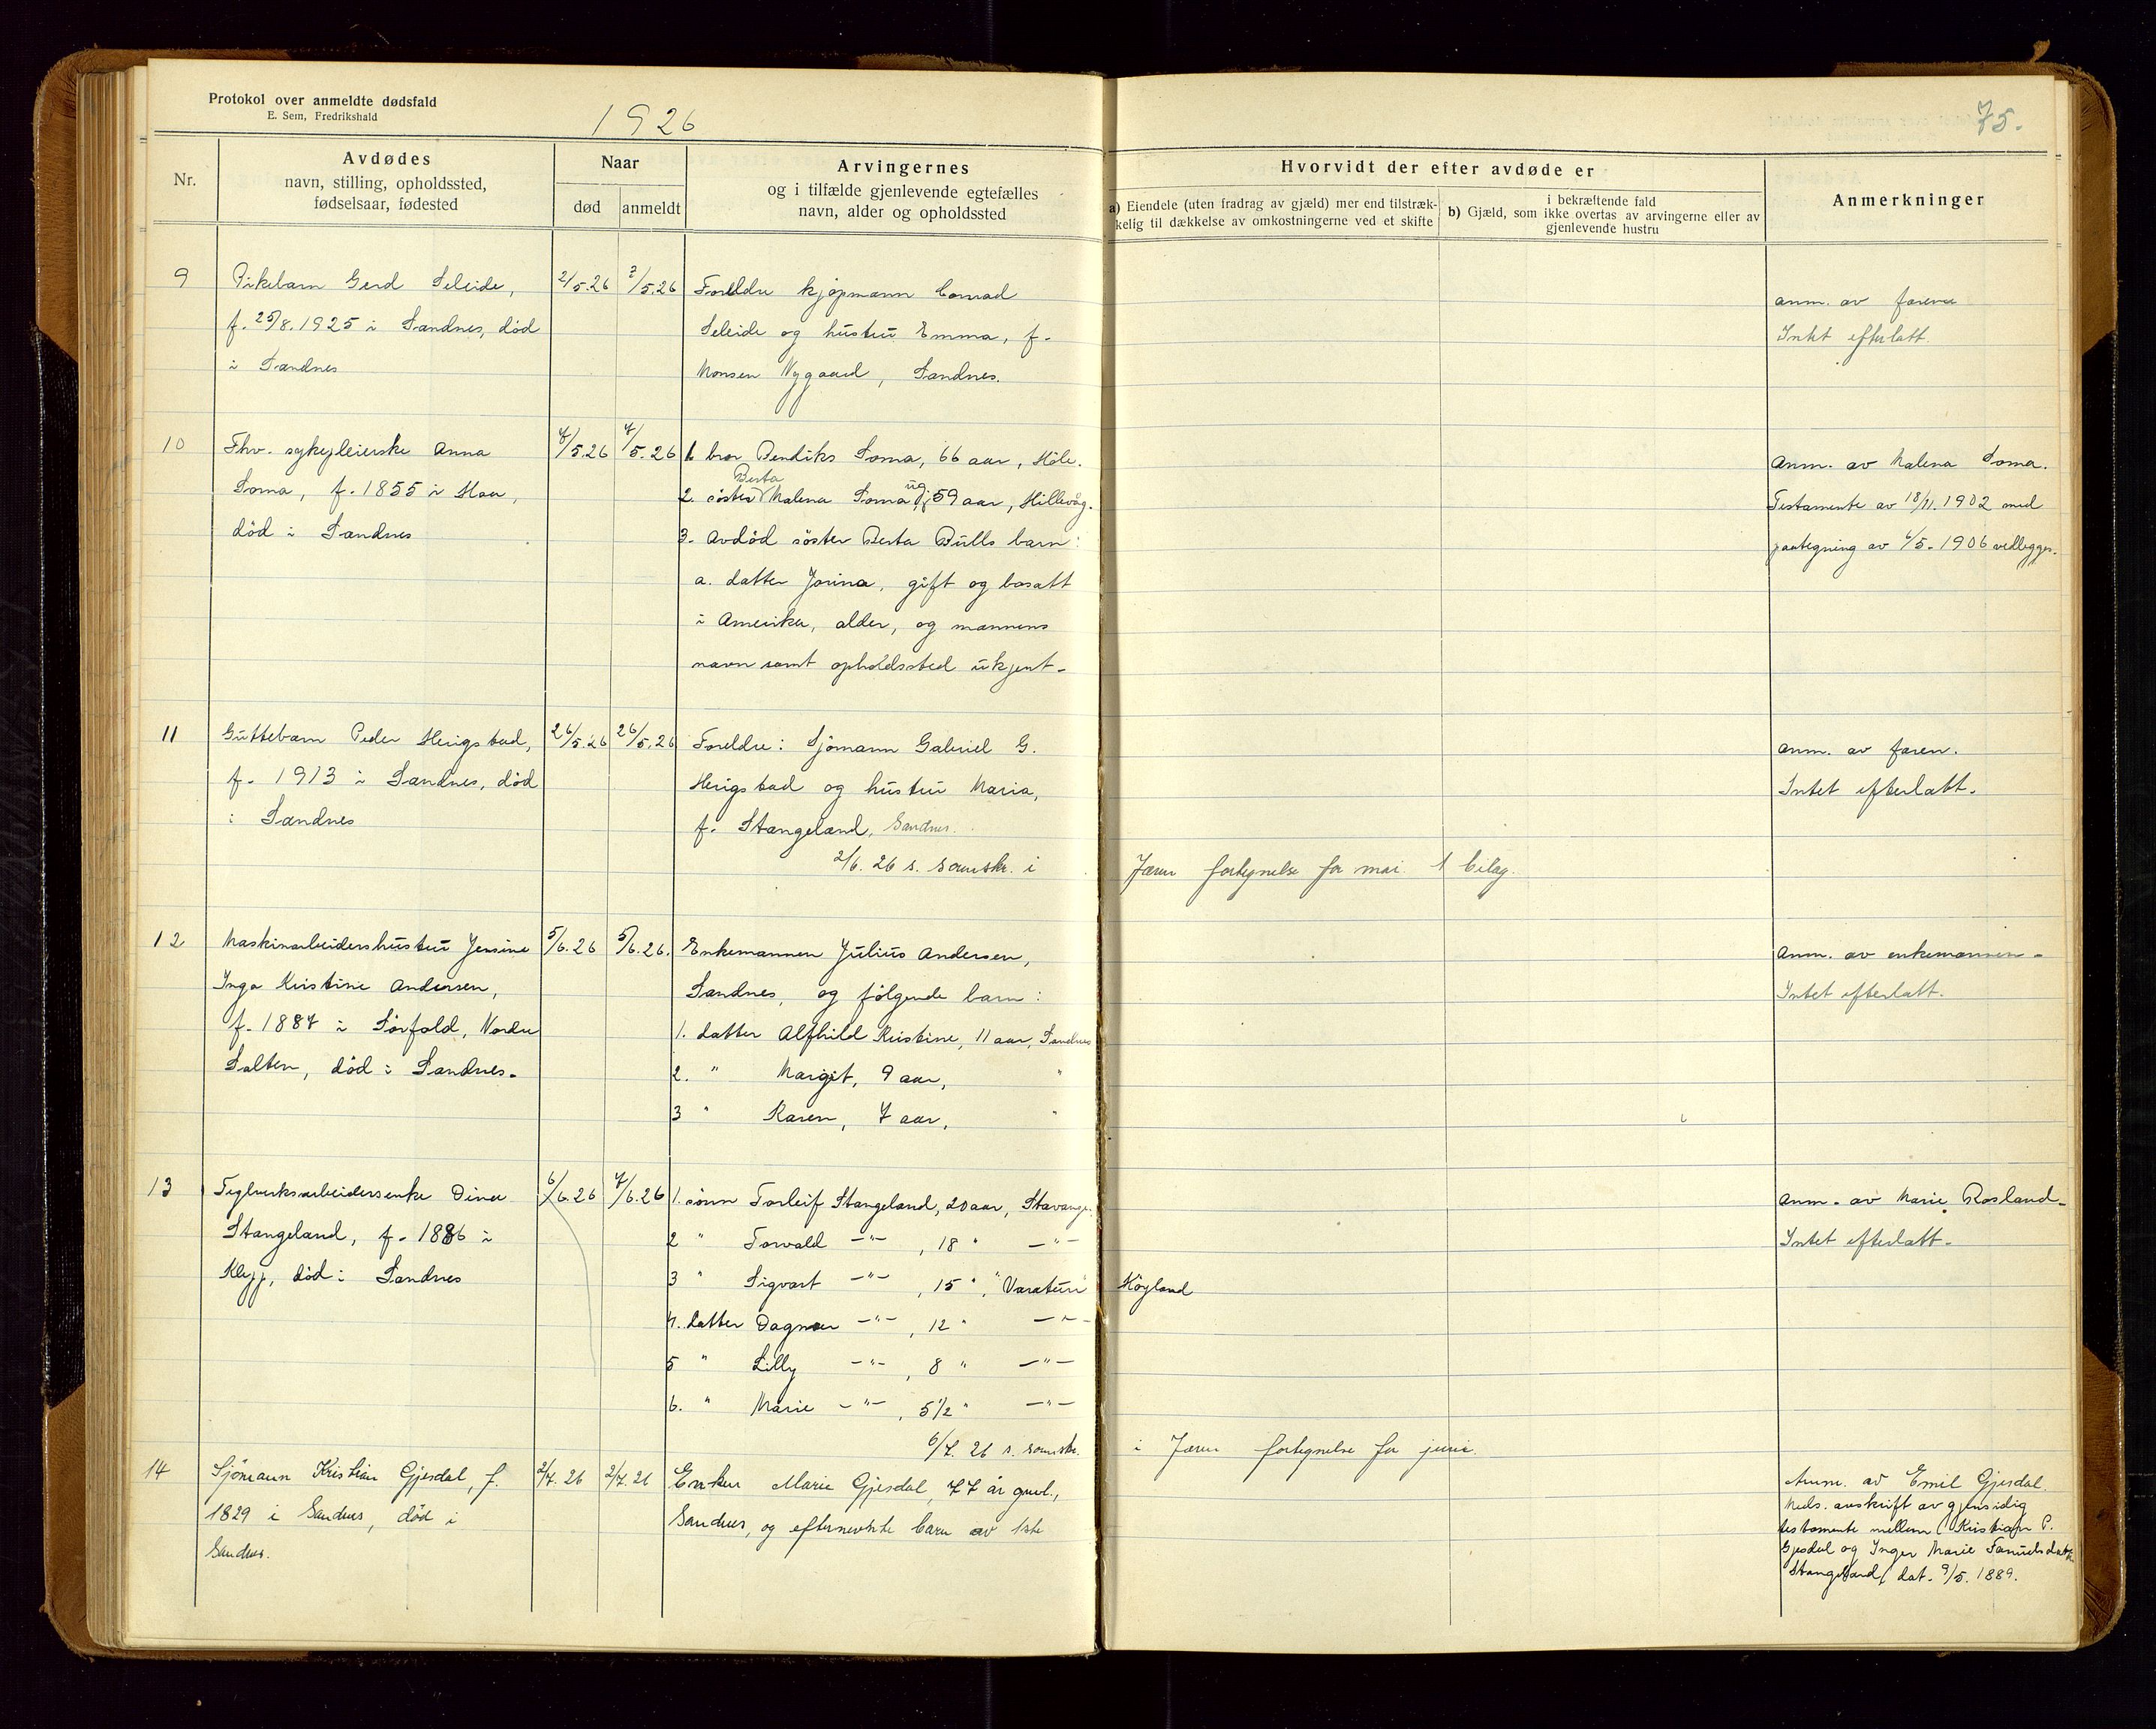 Protokol over anmeldte dødsfald
E. Sem, Fredrikshald
1926
75.
Nr.
Avdødes
navn, stilling, opholdssted,
fødselsaar, fødested
Naar
død
anmeldt
Arvingernes
og i tilfælde gjenlevende egtefælles
navn, alder og opholdssted
Hvorvidt der efter avdøde er
a) Eiendele (uten fradrag av gjæld) mer end tilstræk-
kelig til dækkelse av omkostningerne ved et skifte
i bekræftende fald
b) Gjæld, som ikke overtas av arvingerne eller av
gjenlevende hustru
Anmerkninger
9
Pikebarn Gerd Seleide,
f. 25/8.1925 i Sandnes, død
i Sandnes
2/5.26
3/5.26
Foreldre kjøpmann Conrad
Seleide og hustru Emma, f.
Monsen Nygaard, Sandnes.
anm. av faren
Intet efterlatt.
10
Fhv. sykepleierske Anna
Soma, f. 1855 i Haa,
død i Sandnes
7/5.26
7/5.26
1. bror Bendiks Soma, 66 aar, Höle.
Berta
2. söster Malena Soma, ug. 59 aar, Hillevåg.
3. Avdöd söster Berta Bulls barn:
a. datter Jorina, gift og bosatt
i Amerika, alder, og mannens
navn samt opholdssted ukjent.
Anm. av Malena Soma.
Testamente av 18/11.1902 med
paategning av 6/5.1906 vedlegges.
11
Guttebarn Peder Herigstad,
f. 1913 i Sandnes, död
i Sandnes
26/5.26
26/5.26
Foreldre: Sjömann Gabriel G.
Herigstad og hustru Maria,
f. Stangeland, Sandnes.
2/6.26 s. sornskr. i
Jæren fortegnelse for mai. 1 bilag.
anm. av faren.
Intet efterlatt.
12
Maskinarbeidershustru Jensine
Inga Kristine Andersen,
f. 1887 i Sörfold, Nordre
Salten, död i Sandnes.
5/6.26
5/6.26.
Enkemannen Julius Andersen,
Sandnes, og følgende barn:
1. datter Alfhild Kristine, 11 aar, Sandnes
2. " Margit, 9 aar, "
3 " Karen, 7 aar, "
Anm. av enkemannen.
Intet efterlatt.
13
Teglverksarbeidersenke Dina
Stangeland, f. 1886 i
Klepp, död i Sandnes
6/6.26
7/6.26
1. sönn Torleif Stangeland, 20 aar, Stavanger.
2 " Torvald —"—, 18 " —"—
3 " Sigvart —"—, 15 ", Varatun
Högland
4. datter Dagmar —"—, 12 " —"—
5 " Lilly —"—, 8 " —"—
6. " Marie —"—, 5 1/2 " —"—
6/7.26 s. sornskr.
i Jæren fortegnelse for juni.
Anm. av Marie Rosland.
Intet efterlatt.
14
Sjömann Kristian Gjesdal, f.
1829 i Sandnes, död i
Sandnes.
2/7.26
2/7.26
Enken Marie Gjesdal, 77 år gml.,
Sandnes, og efternevnte barn av 1ste
Anm. av Emil Gjesdal.
Meds. avskrift av gjensidig
testamente mellem Kristian P.
Gjesdal og Inger Marie Samuelsdatter
Stangeland, dat. 9/5.1889.